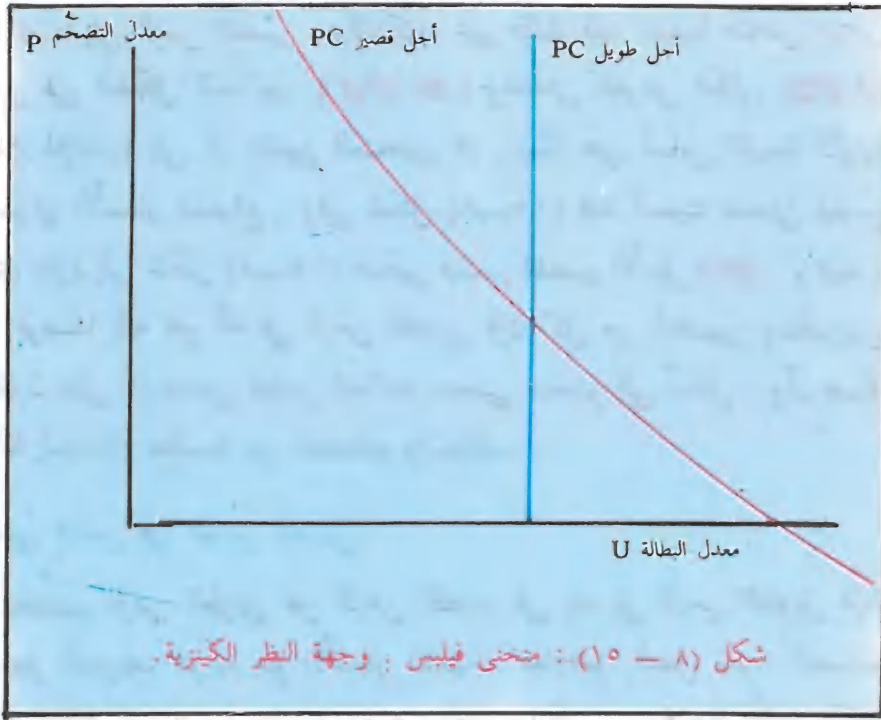 معدل التضخم P
أجل قصير PC
أجل طويل PC
معدل البطالة U
شكل (٨ — ١٥) : منحنى فيلبس : وجهة النظر الكينزية .